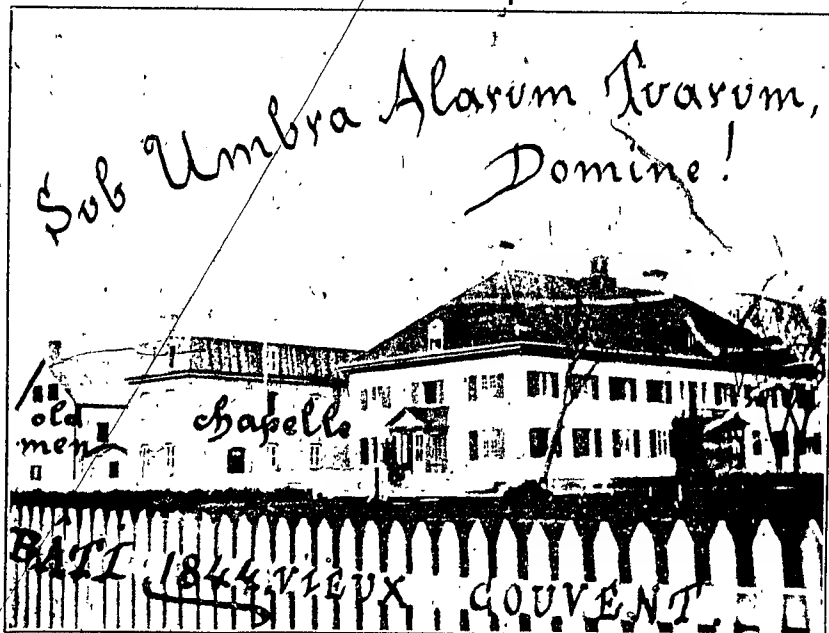 Sub Umbra Alarum Tuarum,
Domine!
old
men
chapelle
BATI 1844 VIEUX COUVENT